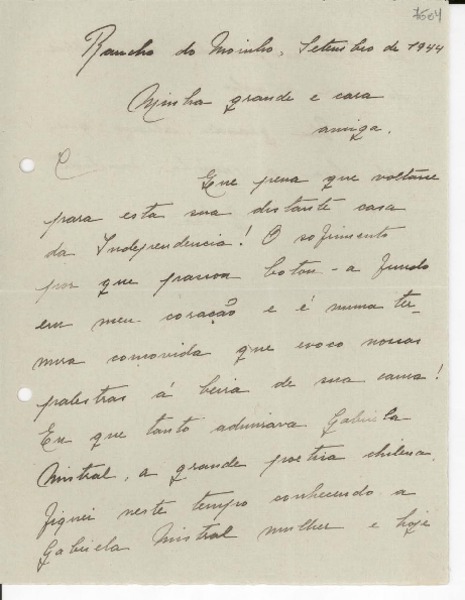 7504
Rancho do Moinho, Setembro de 1944
Minha grande e cara
amiga.
Que pena que voltasse
para esta sua distante casa
da Independencia! O sofrimento
por que passou botou-a fundo
em meu coração e é numa ter-
nura comovida que evoco nossas
palestras á beira de sua cama!
Eu que tanto admirava Gabriela
Mistral, a grande poetisa chilena,
fiquei neste tempo conhecendo a
Gabriela Mistral mulher e hoje